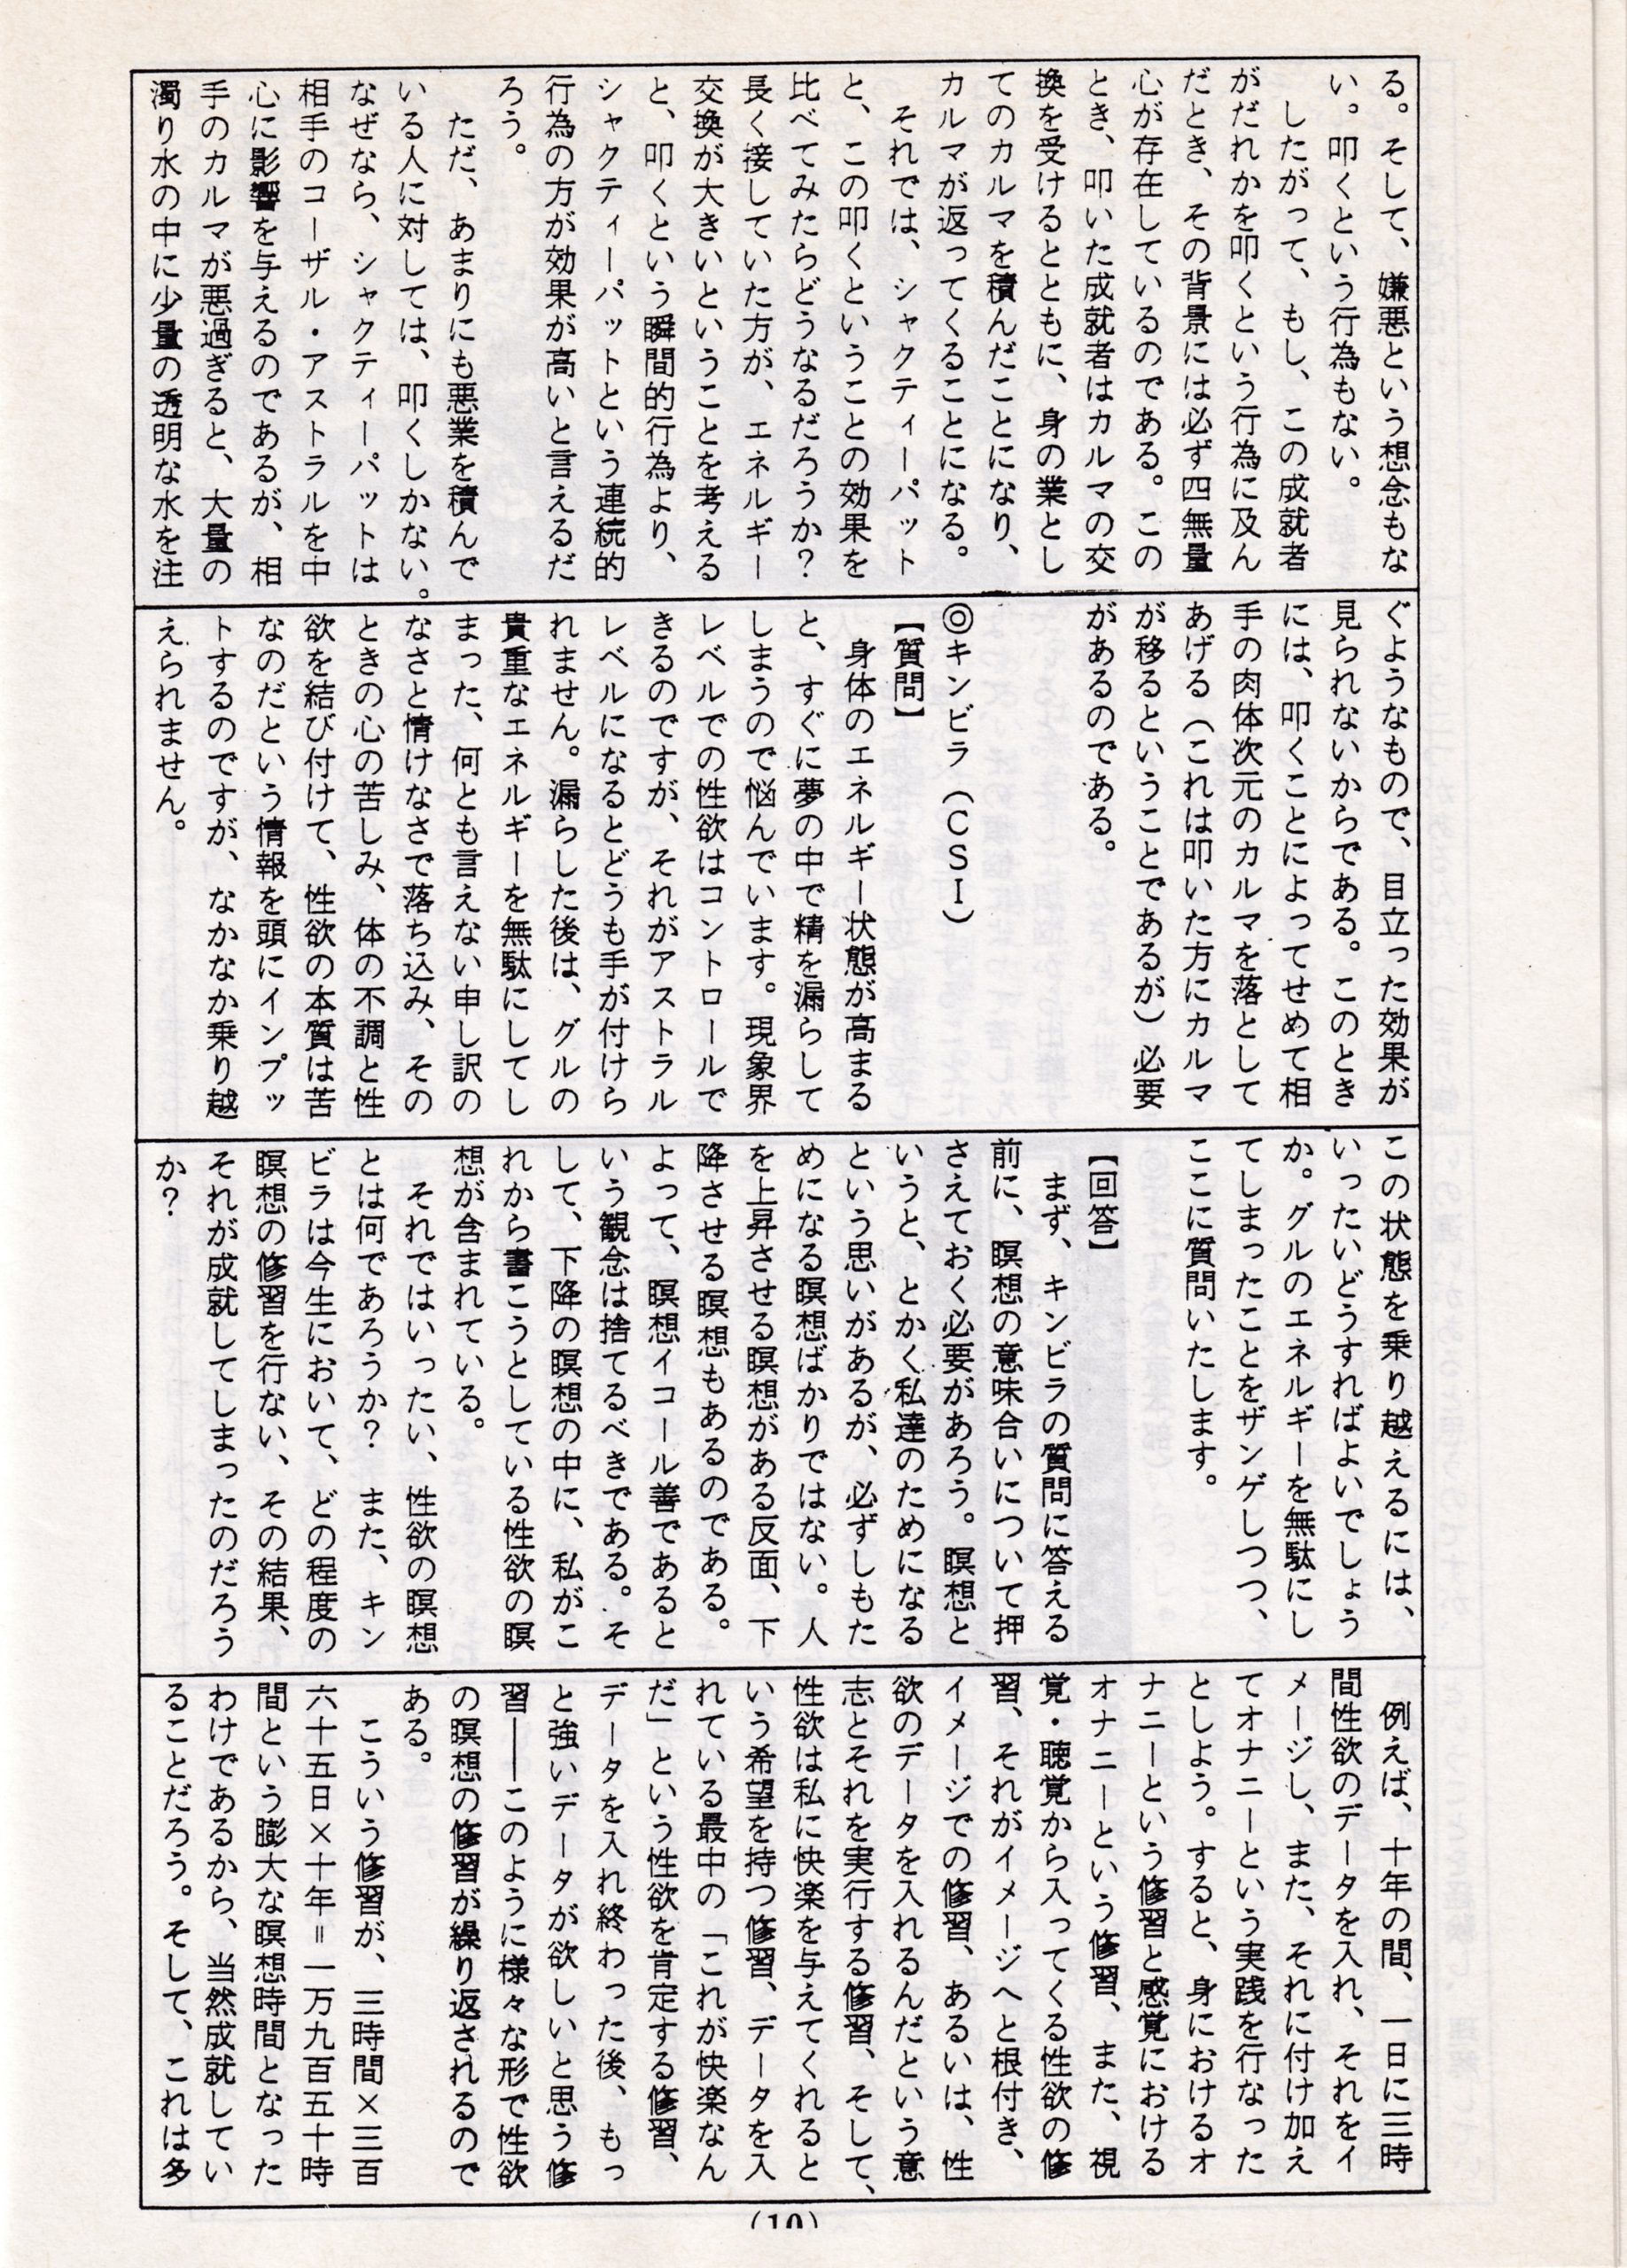 る。そして、嫌悪という想念もな
い。叩くという行為もない。
したがって、もし、この成就者
がだれかを叩くという行為に及ん
だとき、その背景には必ず四無量
心が存在しているのである。この
とき、叩いた成就者はカルマの交
換を受けるとともに、身の業とし
てのカルマを積んだことになり、
カルマが返ってくることになる。
それでは、シャクティーパット
と、この叩くということの効果を
比べてみたらどうなるだろうか?
長く接していた方が、エネルギー
交換が大きいということを考える
と、叩くという瞬間的行為より、
シャクティーパットという連続的
行為の方が効果が高いと言えるだ
ろう。
ただ、あまりにも悪業を積んで
いる人に対しては、叩くしかない。
なぜなら、シャクティーパットは
相手のコーザル・アストラルを中
心に影響を与えるのであるが、相
手のカルマが悪過ぎると、大量の
濁り水の中に少量の透明な水を注
ぐようなもので、目立った効果が
見られないからである。このとき
には、叩くことによってせめて相
手の肉体次元のカルマを落として
あげる(これは叩いた方にカルマ
が移るということであるが)必要
があるのである。
◎キンビラ(CSI)
【質問】
身体のエネルギー状態が高まる
と、すぐに夢の中で精を漏らして
しまうので悩んでいます。現象界
レベルでの性欲はコントロールで
きるのですが、それがアストラル
レベルになるとどうも手が付けら
れません。漏らした後は、グルの
貴重なエネルギーを無駄にしてし
まった、何とも言えない申し訳の
なさと情けなさで落ち込み、その
ときの心の苦しみ、体の不調と性
欲を結び付けて、性欲の本質は苦
なのだという情報を頭にインプッ
トするのですが、なかなか乗り越
えられません。
この状態を乗り越えるには、
いったいどうすればよいでしょう
か。グルのエネルギーを無駄にし
てしまったことをザンゲしつつ、
ここに質問いたします。
【回答】
まず、キンビラの質問に答える
前に、瞑想の意味合いについて押
さえておく必要があろう。瞑想と
いうと、とかく私達のためになる
という思いがあるが、必ずしもた
めになる瞑想ばかりではない。人
を上昇させる瞑想がある反面、下
降させる瞑想もあるのである。
よって、瞑想イコール善であると
いう観念は捨てるべきである。そ
して、下降の瞑想の中に、私がこ
れから書こうとしている性欲の瞑
想が含まれている。
それではいったい、性欲の瞑想
とは何であろうか? また、キン
ビラは今生において、どの程度の
瞑想の修習を行ない、その結果、
それが成就してしまったのだろう
か?
例えば、十年の間、一日に三時
間性欲のデータを入れ、それをイ
メージし、また、それに付け加え
てオナニーという実践を行なった
としよう。すると、身におけるオ
ナニーという修習と感覚における
オナニーという修習、また、視
覚・聴覚から入ってくる性欲の修
習、それがイメージへと根付き、
イメージでの修習、あるいは、性
欲のデータを入れるんだという意
志とそれを実行する修習、そして、
性欲は私に快楽を与えてくれると
いう希望を持つ修習、データを入
れている最中の「これが快楽なん
だ」という性欲を肯定する修習、
データを入れ終わった後、もっ
と強いデータが欲しいと思う修
習――このように様々な形で性欲
の瞑想の修習が繰り返されるので
ある。
こういう修習が、三時間×三百
六十五日×十年=一万九百五十時
間という膨大な瞑想時間となった
わけであるから、当然成就してい
ることだろう。そして、これは多
(10)